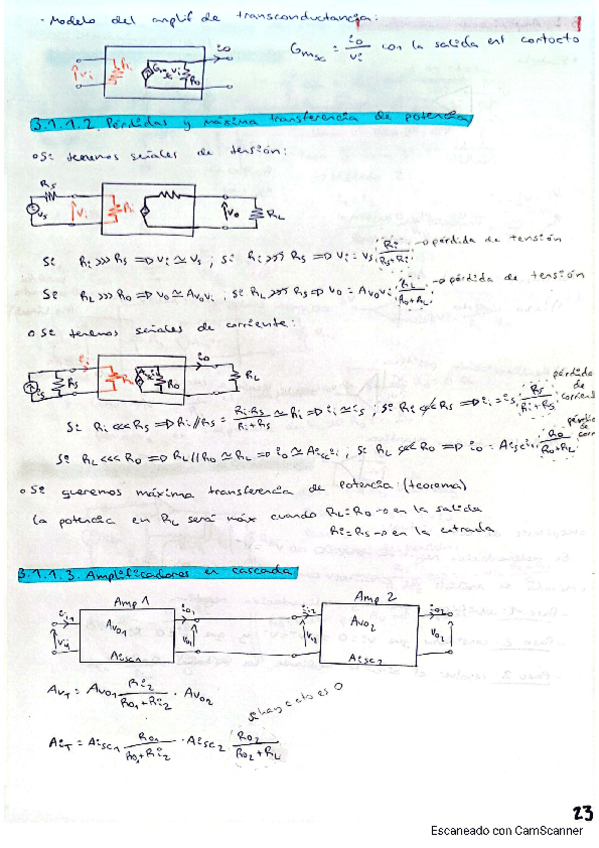 · Modelo del amplif de transconductancia:
Gmsc = io/vi con la salida en cortocto
+ vi Ri Gmsc vi Ro io
3.1.1.2. Pérdidas y máxima transferencia de potencia
o Si tenemos señales de tensión:
Rs vs vi Ri vo RL
Si Ri >>> Rs => vi ≃ vs ; si Ri >>> Rs => vi = vs Ri/(Rs+Ri) → pérdida de tensión
Si RL >>> Ro => vo ≃ Avo vi ; si RL >>> Rs => vo = Avo vi RL/(Ro+RL) → pérdida de tensión
o Si tenemos señales de corriente:
is Rs ii Ri Aisc ii Ro io RL
Si Ri <<< Rs => Ri // Rs = Ri·Rs/(Ri+Rs) ≃ Ri => ii ≃ is ; si Ri <<< Rs => ii = is Rs/(Ri+Rs) pérdida de corriend
Si RL <<< Ro => RL // Ro ≃ RL => io ≃ Aisc ii ; si RL <<< Ro => io = Aisc ii Ro/(Ro+RL) de
o Si queremos máxima transferencia de potencia: (teorema)
la potencia en RL será máx cuando RL = Ro → en la salida
Ri = Rs → en la entrada
3.1.1.3. Amplificadores en cascada
Amp 1 Amp 2
ii1 vi1 Avo1 Aisc1 io1 vo1 ii2 vi2 Avo2 Aisc2 io2 vo2
AvT = Avo1 Ri2/(Ro1+Ri2) · Avo2
si hay cto es 0
AiT = Aisc1 Ro1/(Ro1+Ri2) · Aisc2 Ro2/(Ro2+RL)
23
Escaneado con CamScanner